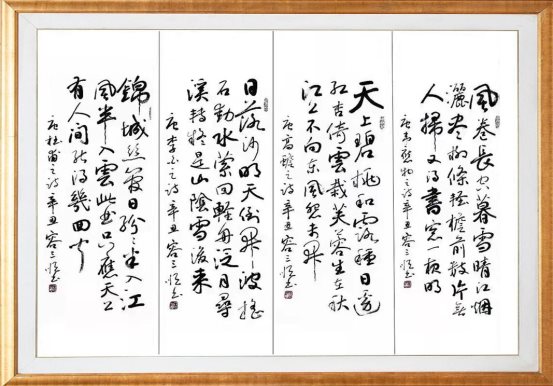 風卷長空暮雪晴江烟
灑尽柳條輕檐前數片無
人掃又得書窓一夜明
唐韋應物之詩辛丑
天上碧桃和露種日邊
紅杏倚雲栽芙蓉生在秋
江上不向東風怨未開
唐高蟾之詩辛丑
日落沙明天倒開波搖
石動水縈回輕舟泛月尋
溪轉疑是山陰雪後來
唐李白之詩辛丑
錦城絲管日紛紛半入江
風半入雲此曲只應天上
有人間能得幾回聞
唐杜甫之詩辛丑